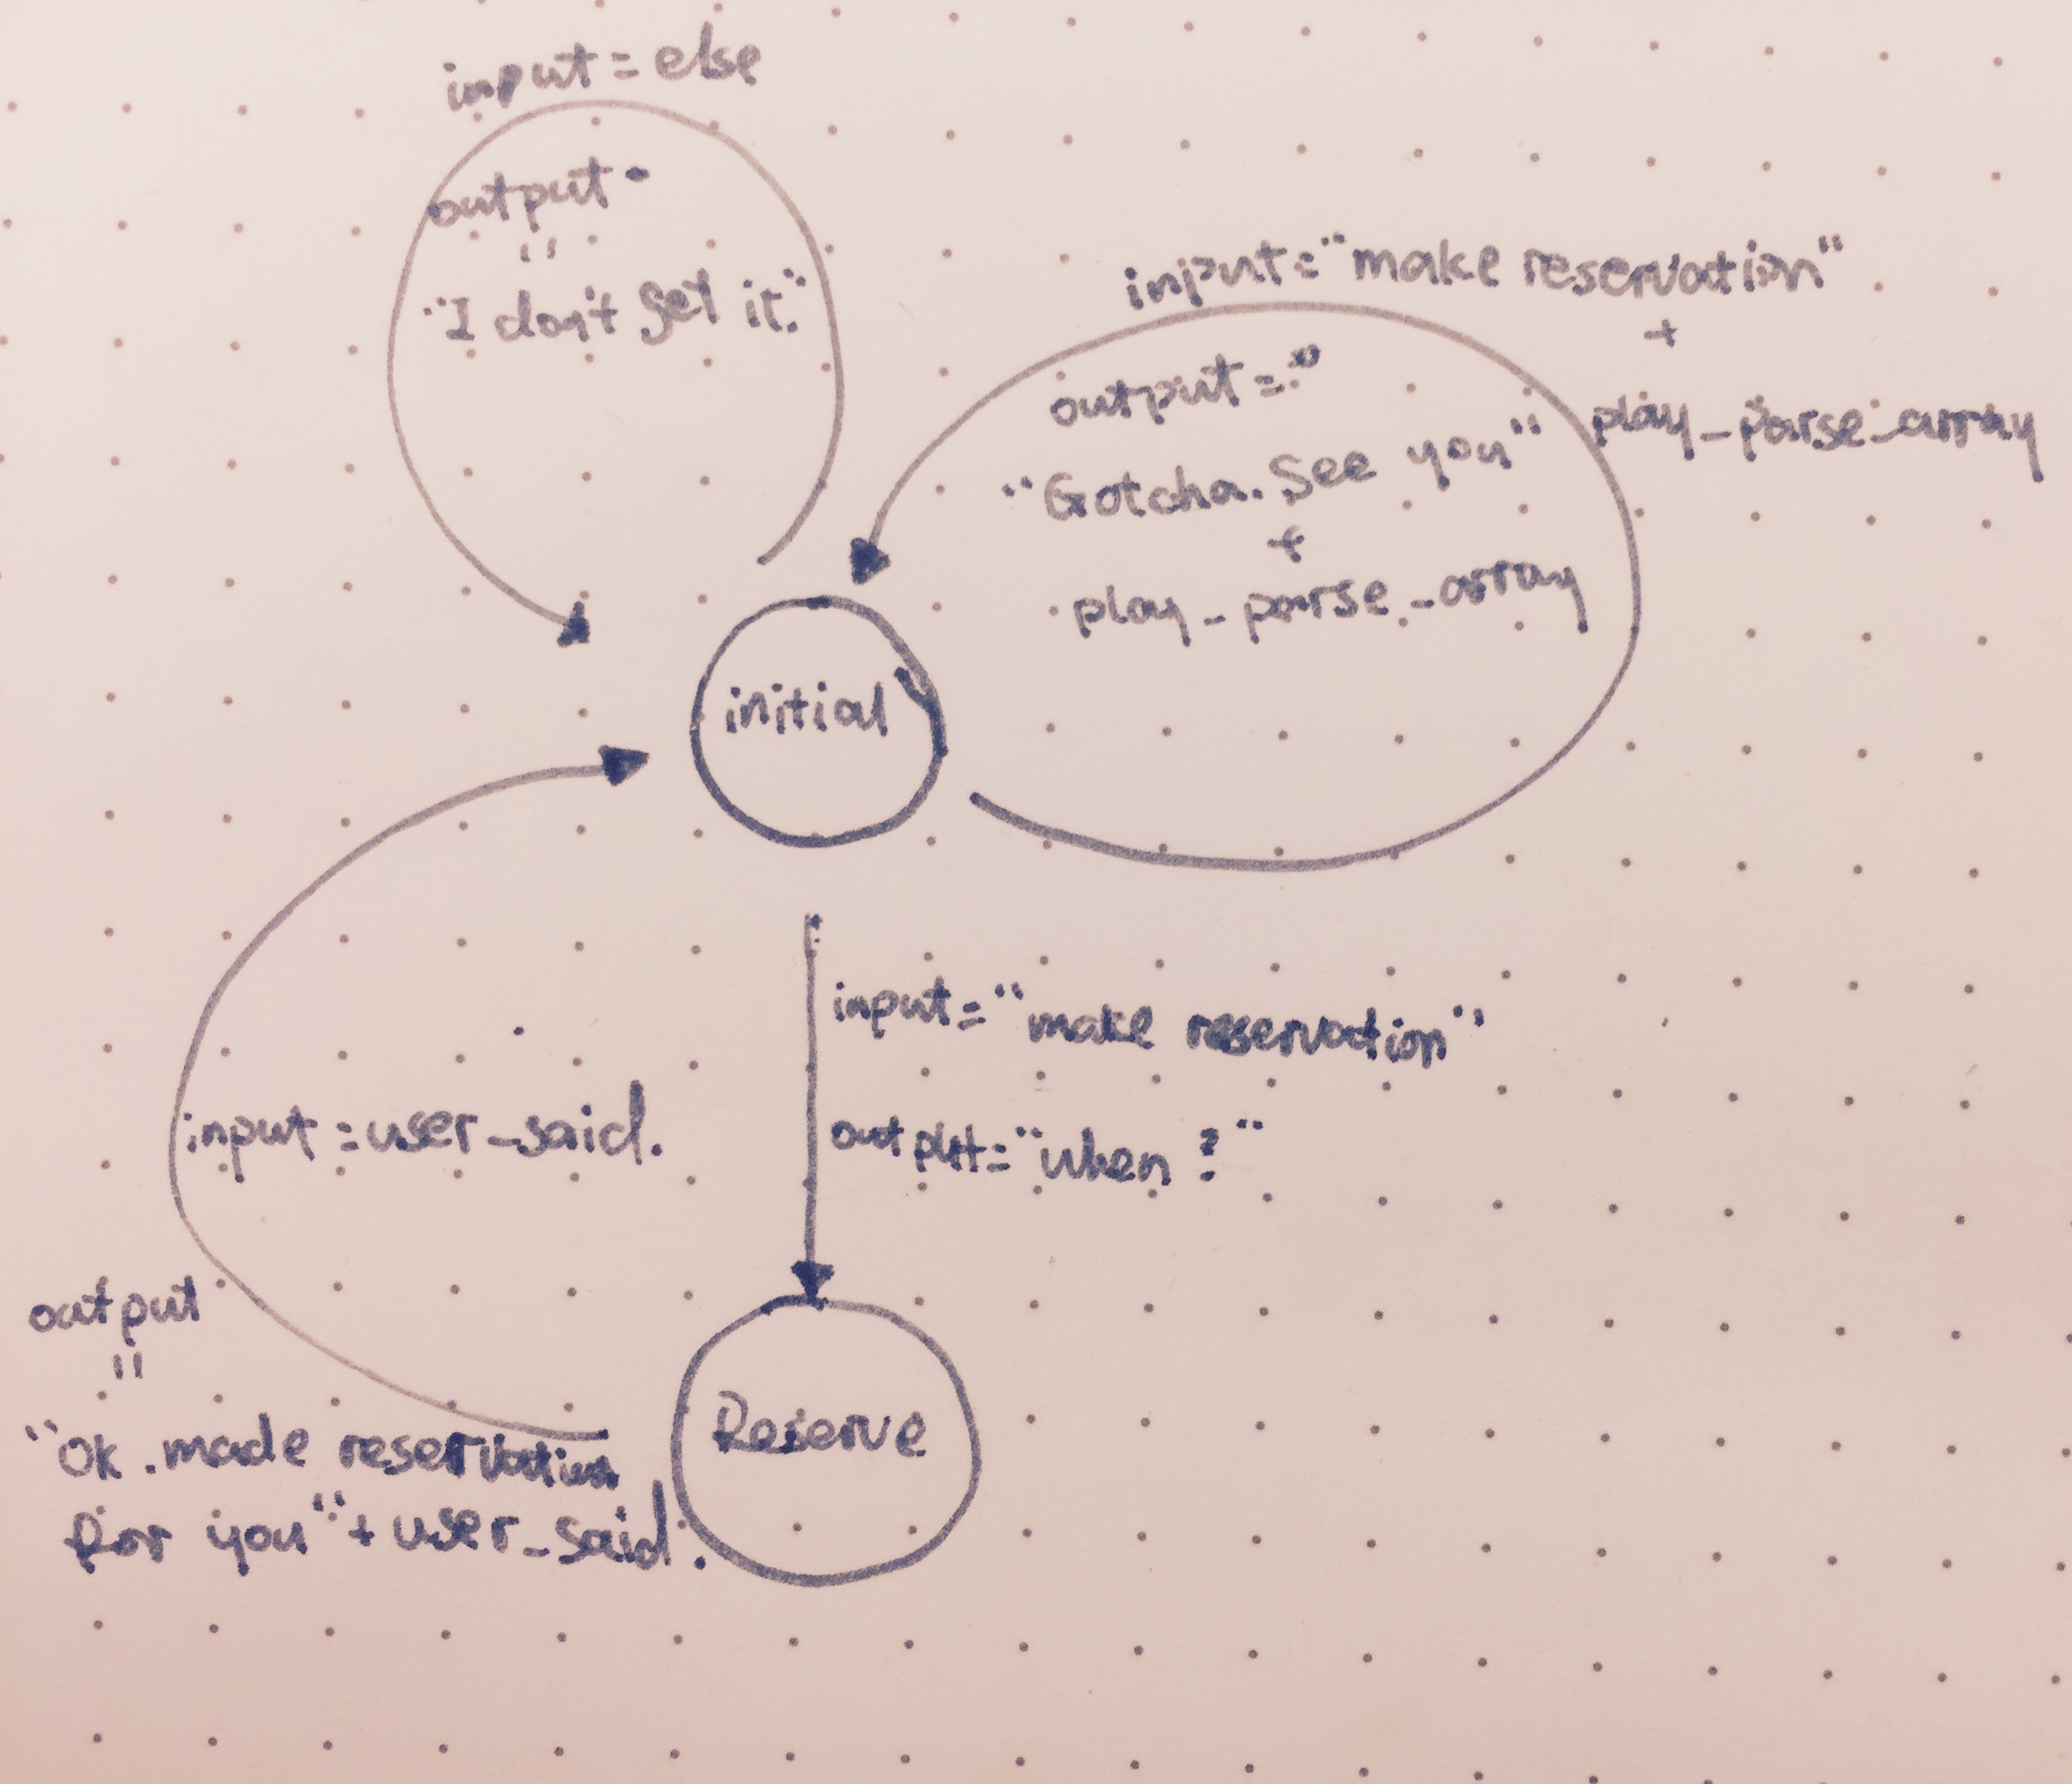 input = else
output =
"I don't get it."
input = "make reservation"
+
play_parse_array
output = "
"Gotcha. See you"
+
play_parse_array
initial
input = "make reservation"
output = "when ?"
input = user_said.
output
=
"Ok. made reservation
for you" + user_said.
Reserve